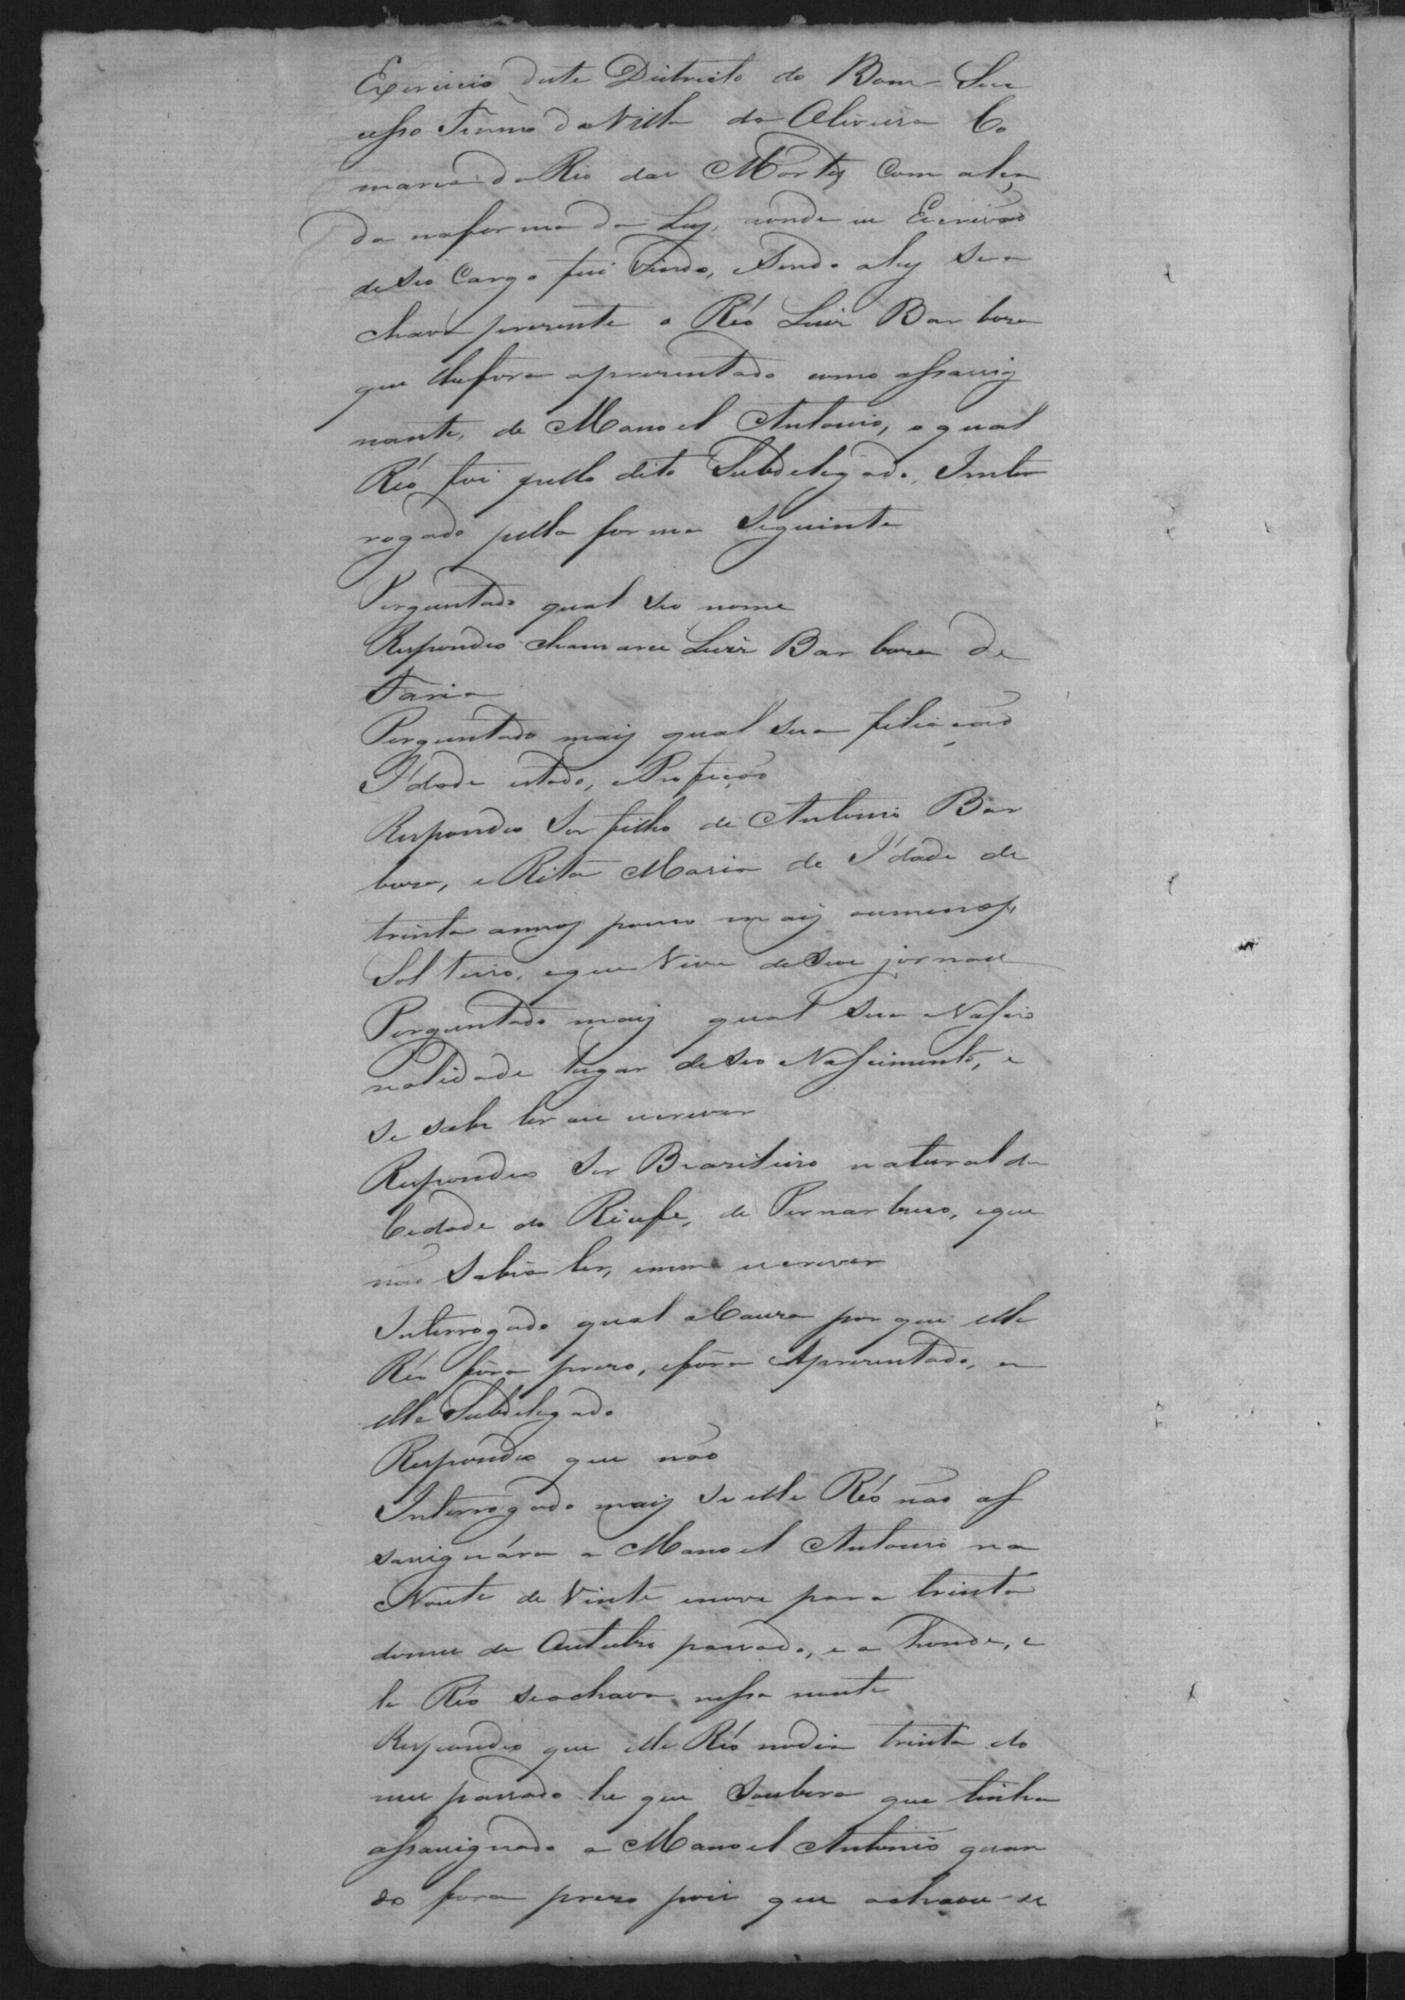 Exercicio deste Districto do Bom Suc
cesso Termo da Villa da Oliveira Co
marca do Rio das Mortes Com alça
da na forma da Ley, aonde eu Escrivão
de seo Cargo fui vindo, e sendo ahy se a
chava prezente o Réo Luis Barboza
que lhe fora aprezentado como assacig
nante, de Manoel Antonio, o qual
Réo foi pello dito Subdelegado, Inter
rogado pella forma Seguinte
Perguntado qual seo nome
Respondeo chamarce Luis Barboza de
Faria
Perguntado mais qual sua filiação
I'dade estado, e Profição
Respondeo Ser filho de Antonio Bar
boza, e Rita Maria de I'dade de
trinta annos pouco mais oumenos,
Solteiro, e que Vive de Seu jornal
Perguntado mais qual sua Nascio
nalidade lugar de seo Nascimento, e
se sabe ler ou escrever
Respondeo Ser Brazileiro natural da
Cidade do Recife, de Pernarbuco, e que
não Sabia ler, enem escrever
Interrogado qual a Cauza por que elle
Réo fôra prezo, e fôra Aprezentado, a
elle Subdelegado
Respondeo que não
Interrogado mais se elle Réo não as
sacignára a Manoel Antonio na
Noute de Vinte enove para trinta
domes de Outubro passado, e a honde, e
le Réo se achava nessa noute
Respondeo que elle Réo nodia trinta do
mes passado he que Soubera que tinha
assacignado a Manoel Antonio quan
do fora prezo pois que achava-se